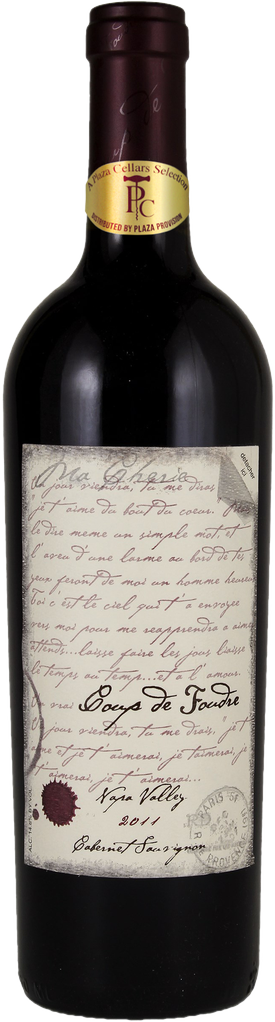 A Plaza Cellars Selection
TPC
DISTRIBUTED BY PLAZA PROVISION
détacher
ici
Ma Cherie
Un jour viendra, tu me diras
"je t'aime du bout du coeur.
le dire meme un simple mot, et
l'aveu d'une larme au bord de tes
yeux feront de moi un homme heureux
Toi c'est le ciel qui t'a envoyee
vers moi pour me reapprendra a aimer
attends...laisse faire les jours laisse
le temps au temp...et a l'amour.
vrai
Coup de Foudre
Un jour viendra, tu me drais, "je t'
aime et je t'aimerai, je t'aimerai, je
t'aimerai, je t'aimerai...
Napa Valley
2011
Cabernet Sauvignon
PARIS
PROVENCE